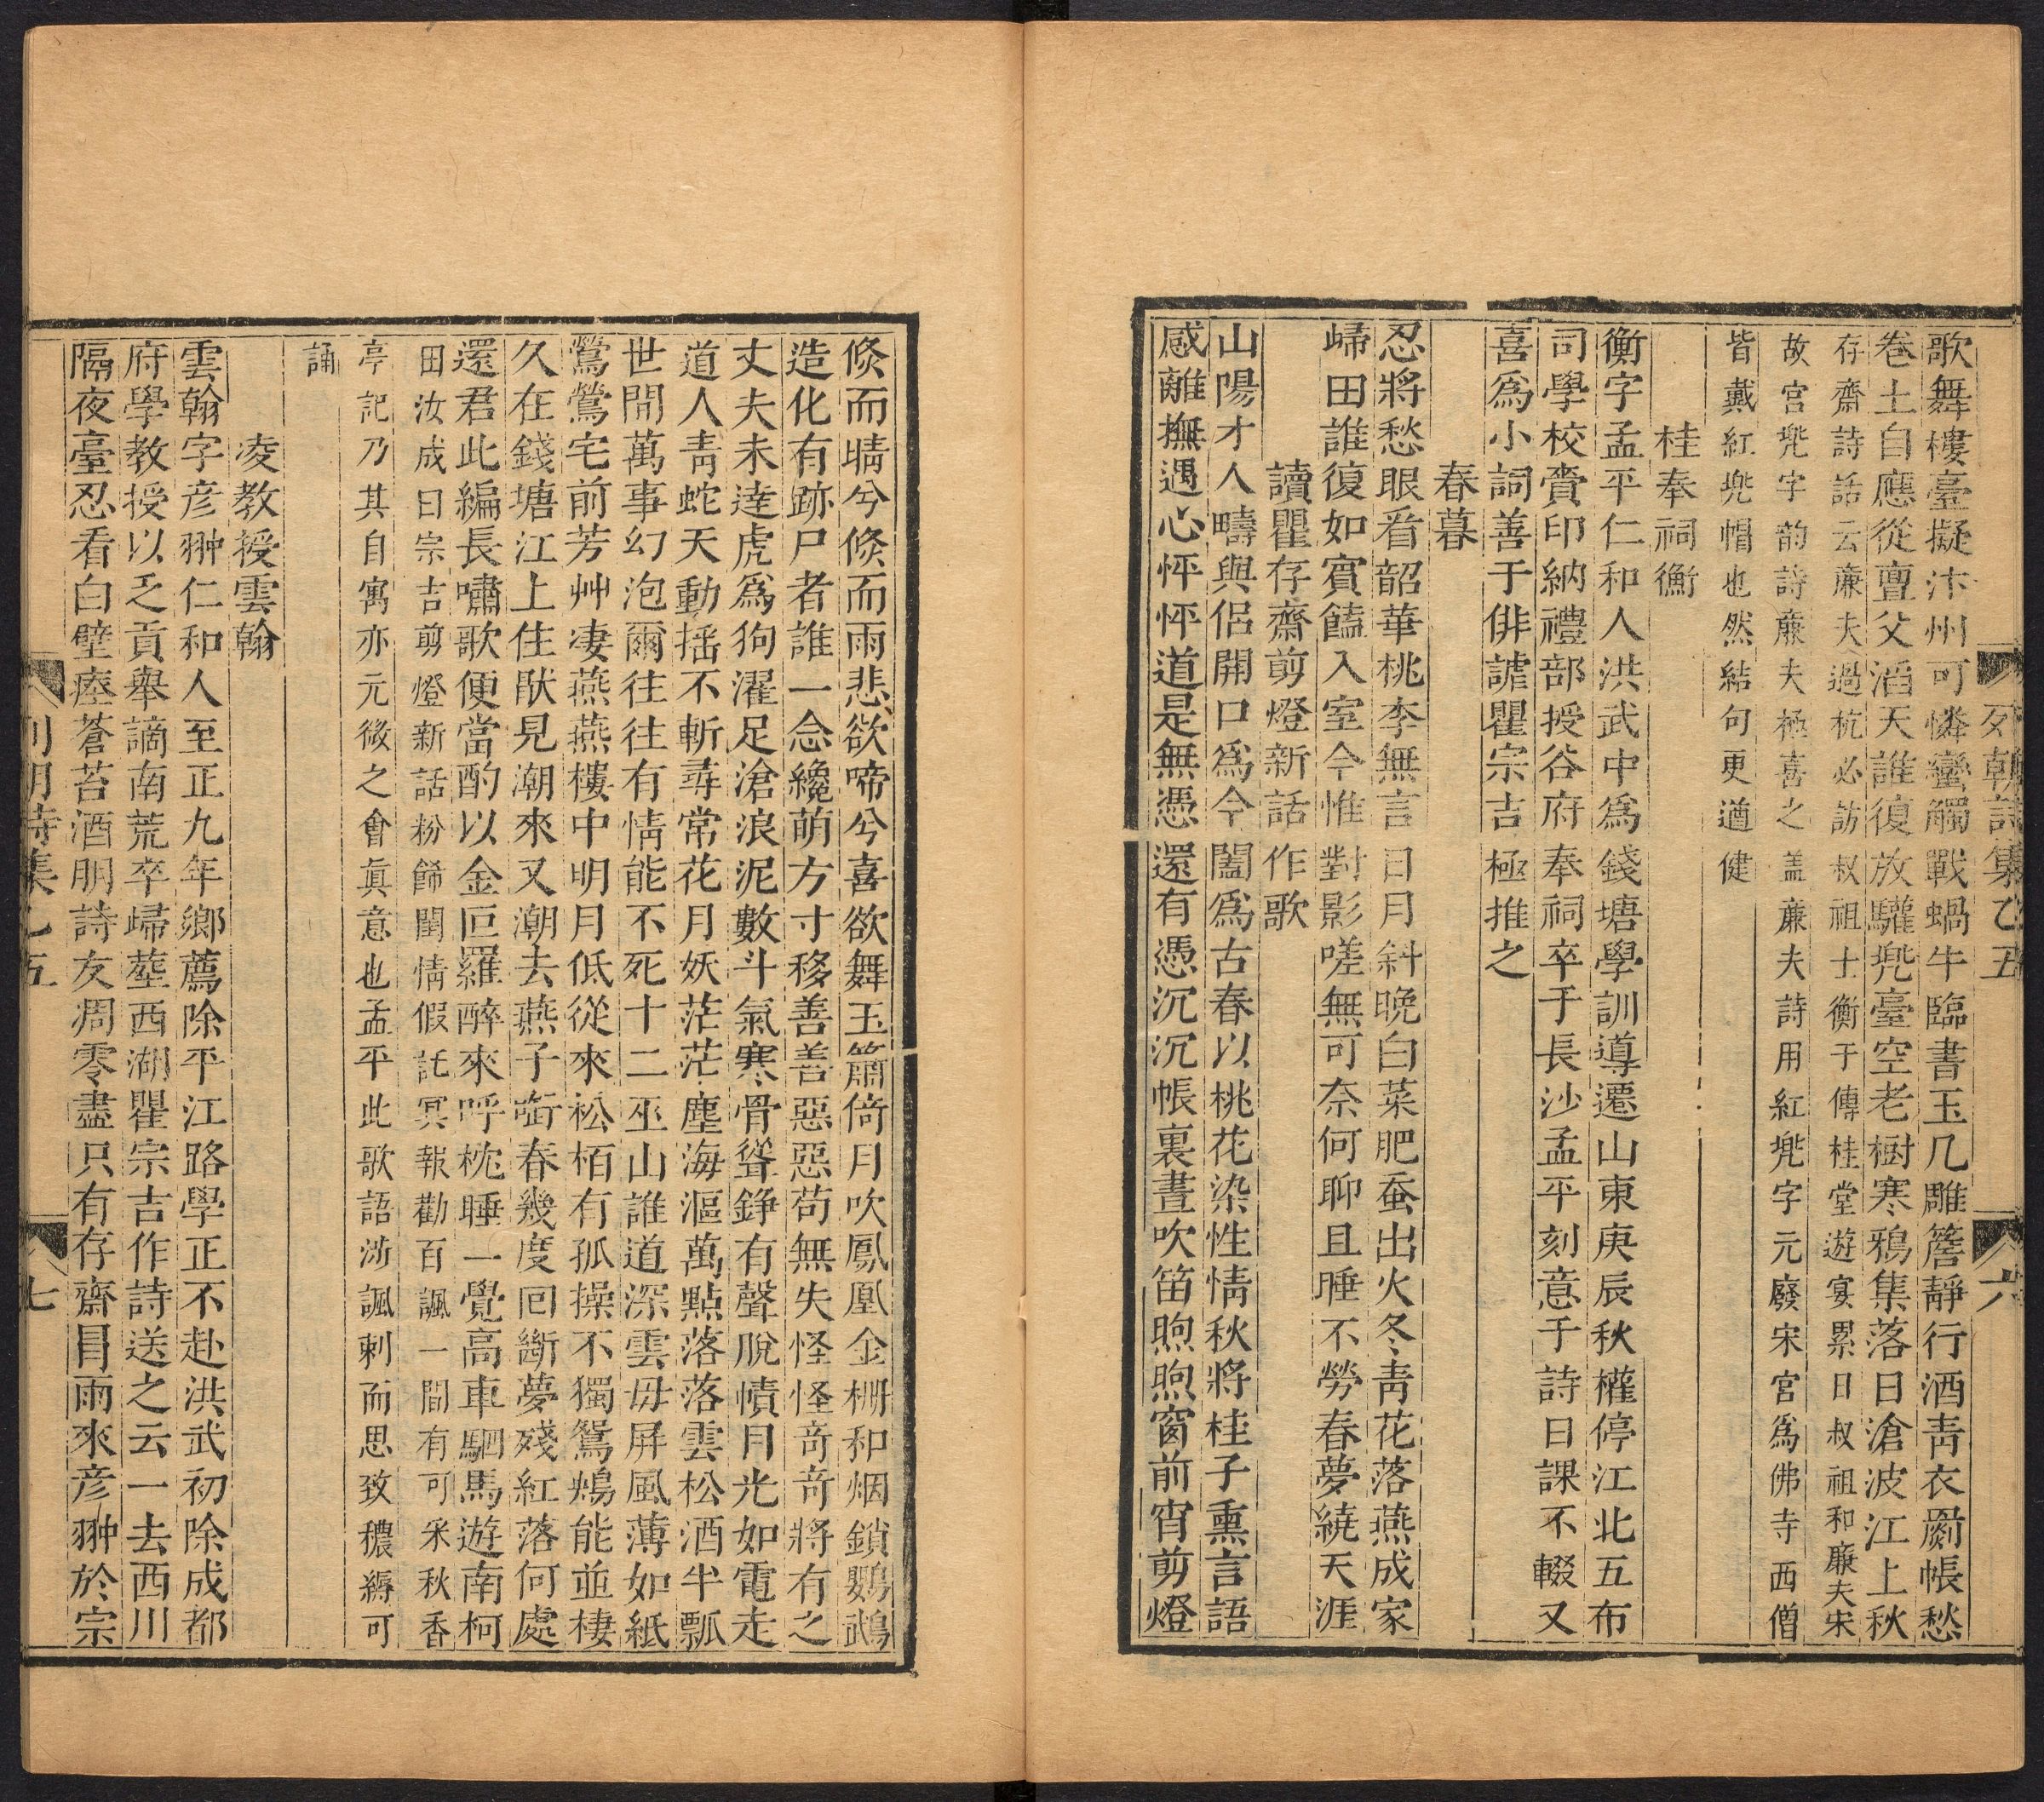 列朝詩集乙五
六
歌舞樓臺擬汴州可憐蠻觸戰蝸牛臨書玉几雕簷靜行酒靑衣罽帳愁
卷土自應從亶父滔天誰復放驩兠臺空老樹寒鴉集落日滄波江上秋
存齋詩話云廉夫過杭必訪叔祖士衡于傳桂堂遊宴累日叔祖和廉夫宋
故宮兠字韵詩廉夫極喜之盖廉夫詩用紅兠字元廢宋宮爲佛寺西僧
皆戴紅兠帽也然結句更遒健
桂奉祠衡
衡字孟平仁和人洪武中爲錢塘學訓導遷山東庚辰秋權停江北五布
司學校賫印納禮部授谷府奉祠卒于長沙孟平刻意于詩日課不輟又
喜爲小詞善于俳謔瞿宗吉極推之
春暮
忍將愁眼看韶華桃李無言日月斜晚白菜肥蚕出火冬靑花落燕成家
歸田誰復如賓饁入室今惟對影嗟無可奈何聊且睡不勞春夢繞天涯
讀瞿存齋剪燈新話作歌
山陽才人疇與侶開口爲今闔爲古春以桃花染性情秋將桂子熏言語
感離撫遇心怦怦道是無憑還有憑沉沉帳裏晝吹笛煦煦窗前宵剪燈
倐而晴兮倐而雨悲欲啼兮喜欲舞玉簫倚月吹鳳凰金柵和烟鎖鸚鵡
造化有跡尸者誰一念纔萌方寸移善善惡惡苟無失怪怪奇奇將有之
丈夫未達虎爲狗濯足滄浪泥數斗氣寒骨聳錚有聲脫幘月光如電走
道人靑蛇天動揺不斬尋常花月妖茫茫塵海漚萬點落落雲松酒半瓢
世間萬事幻泡爾往往有情能不死十二巫山誰道深雲毋屏風薄如紙
鶯鶯宅前芳艸凄燕燕樓中明月低從來松栢有孤操不獨鴛鴂能並棲
久在錢塘江上住猒見潮來又潮去燕子銜春幾度回斷夢殘紅落何處
還君此編長嘯歌便當酌以金叵羅醉來呼枕睡一覺高車駟馬遊南柯
田汝成曰宗吉剪燈新話粉餙閨情假託冥報勸百諷一間有可采秋香
亭記乃其自寓亦元微之會眞意也孟平此歌語渉諷刺而思致穠縟可
誦
凌教授雲翰
雲翰字彦翀仁和人至正九年鄉薦除平江路學正不赴洪武初除成都
府學教授以乏貢舉謫南荒卒歸塟西湖瞿宗吉作詩送之云一去西川
隔夜臺忍看白璧瘞蒼苔酒朋詩友凋零盡只有存齋冐雨來彦翀於宗
列朝詩集乙五
七